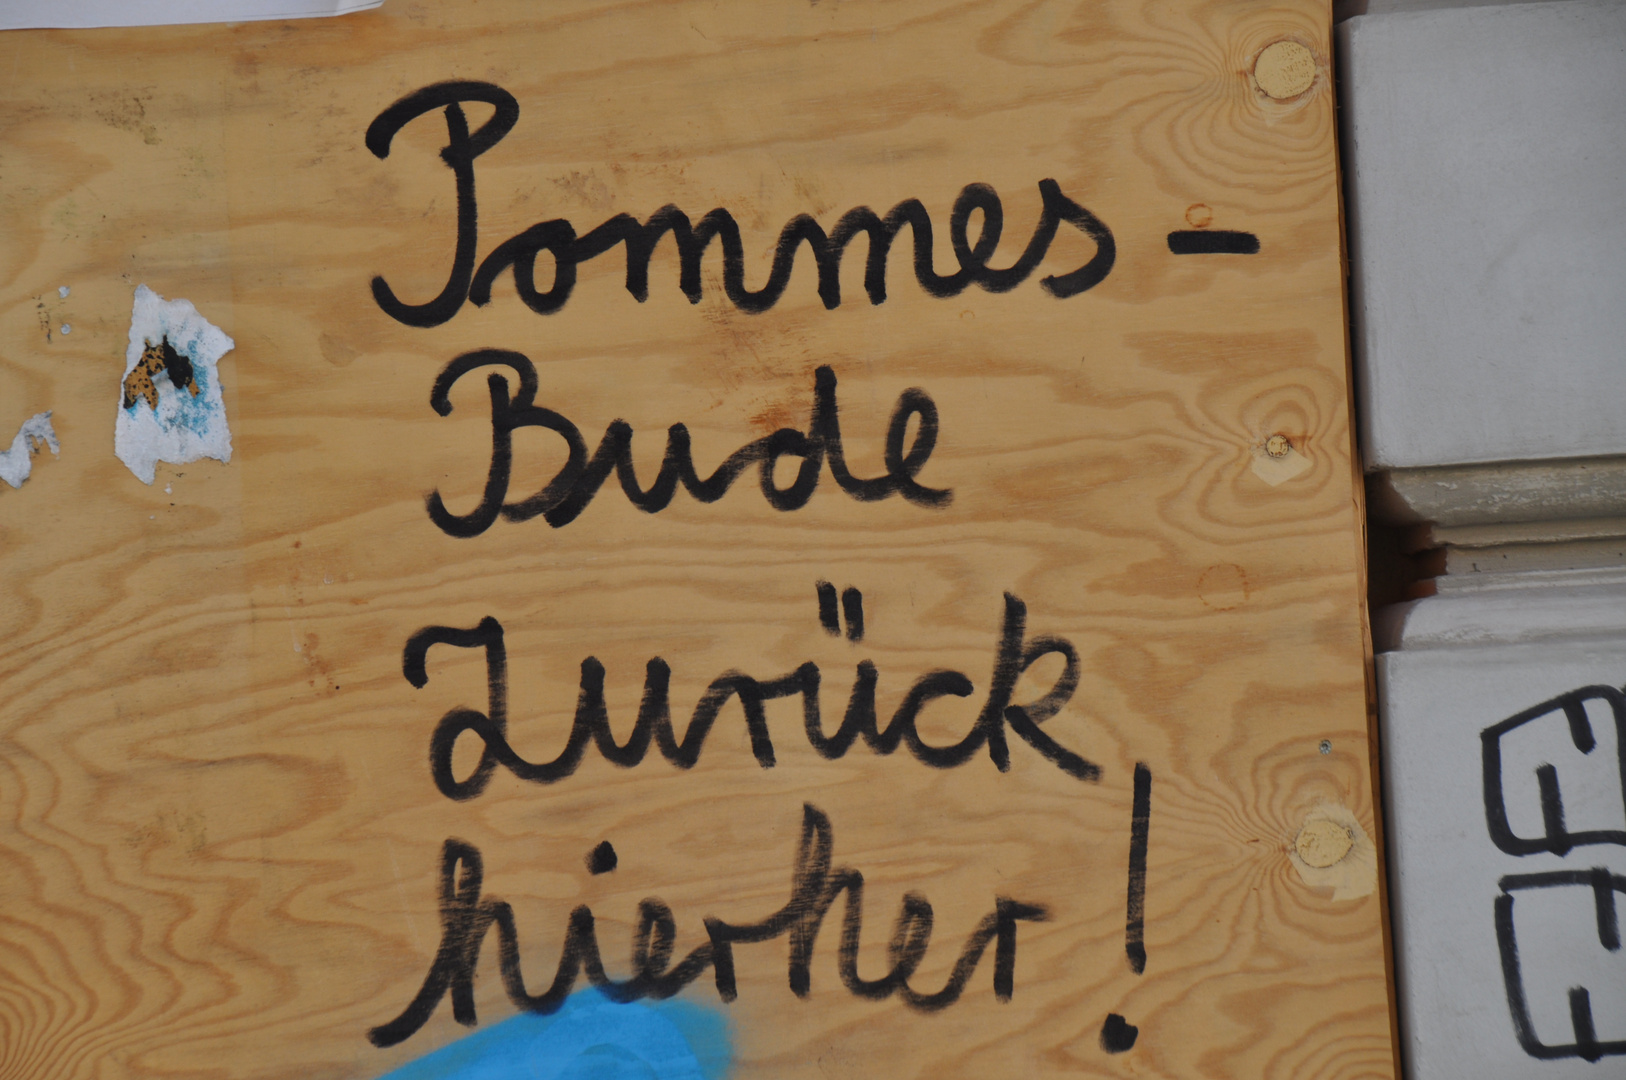 Pommes-
Bude
Zurück
hierher!